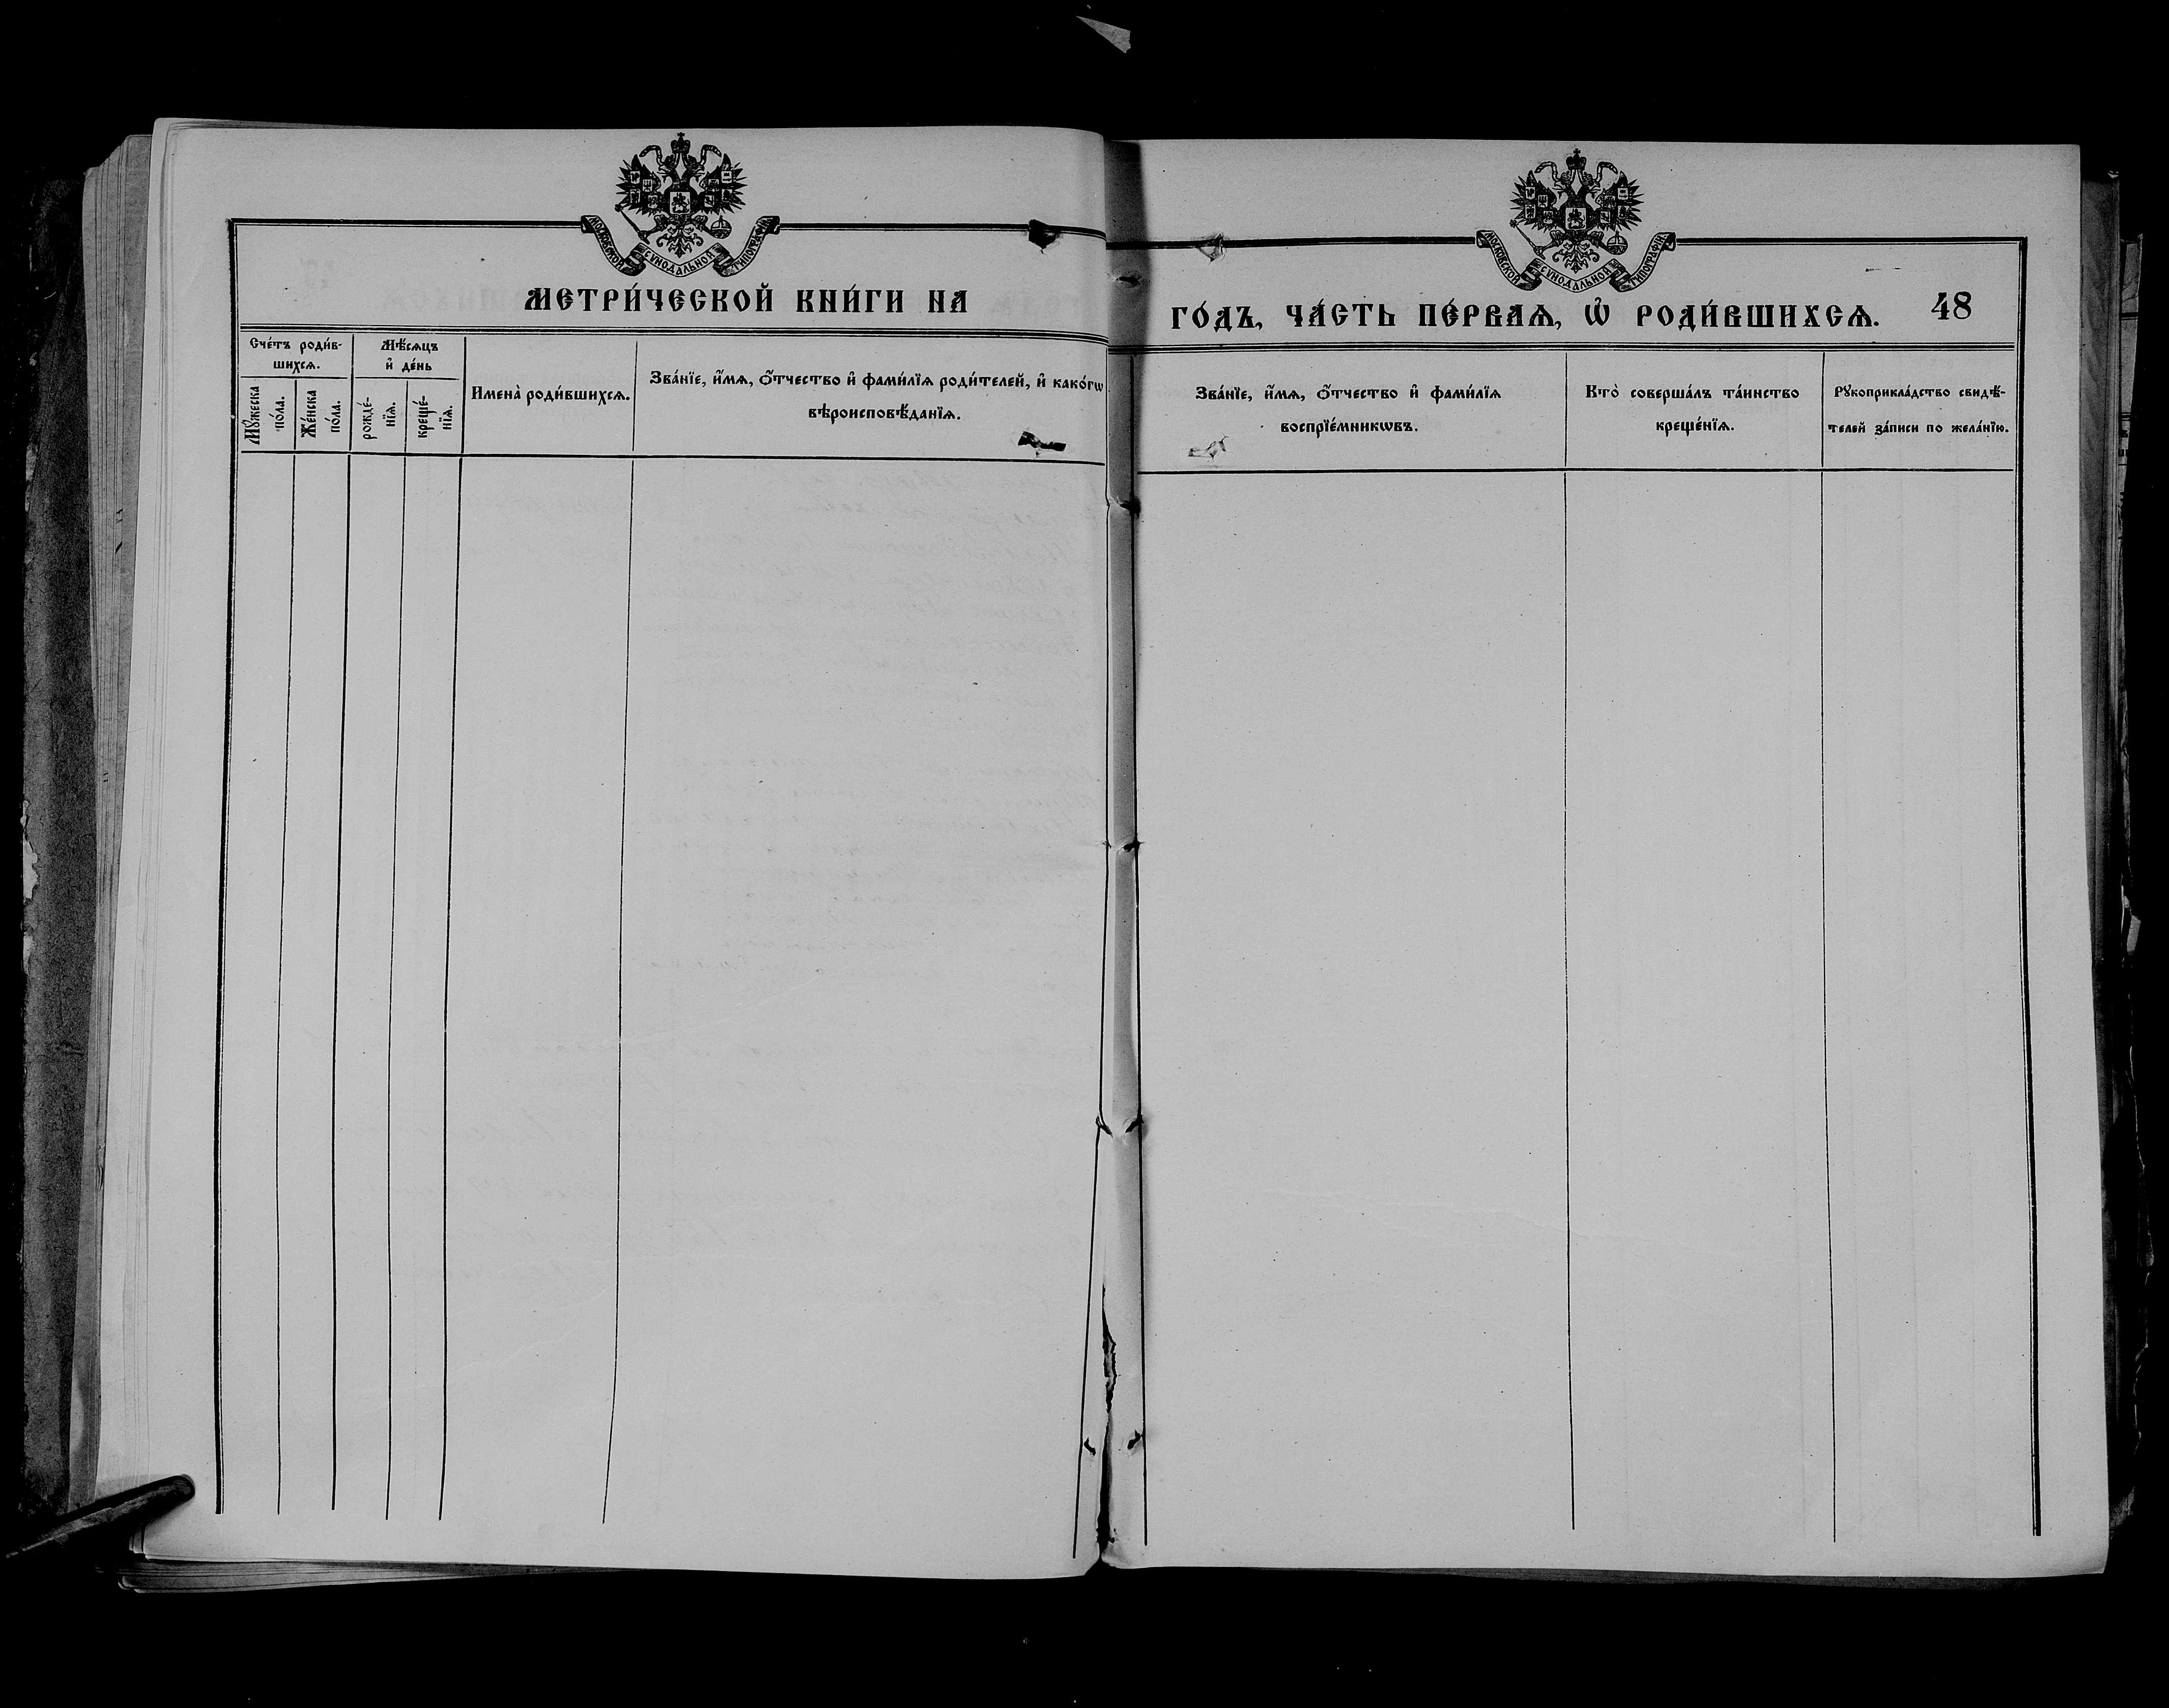 МОСКОВСКОЙ СѴНОДАЛЬНОЙ ТИПОГРАФІИ
МЕТРИ́ЧЕСКОЙ КНИ́ГИ НА
Сче́тъ роди́в-
шихсѧ.
Мꙋ́жеска
по́ла.
Же́нска
по́ла.
Мѣ́сѧцъ
и҆ де́нь
рожде́-
нїѧ.
креще́-
нїѧ.
Имена̀ роди́вшихсѧ.
Зва́нїе, и҆́мѧ, ѻ҆́тчество и҆ фами́лїѧ роди́телей, и҆ како́гѡ
вѣроисповѣ́данїѧ.
МОСКОВСКОЙ СѴНОДАЛЬНОЙ ТИПОГРАФІИ
ГО́ДЪ, ЧА́СТЬ ПЕ́РВАѦ, Ѡ҆ РОДИ́ВШИХСѦ. 48
Зва́нїе, и҆́мѧ, ѻ҆́тчество и҆ фами́лїѧ
воспрїе́мникѡвъ.
Кто̀ соверша́лъ та́инство
креще́нїѧ.
Рꙋкоприкла́дство свидѣ́-
телей за́писи по жела́нїю.